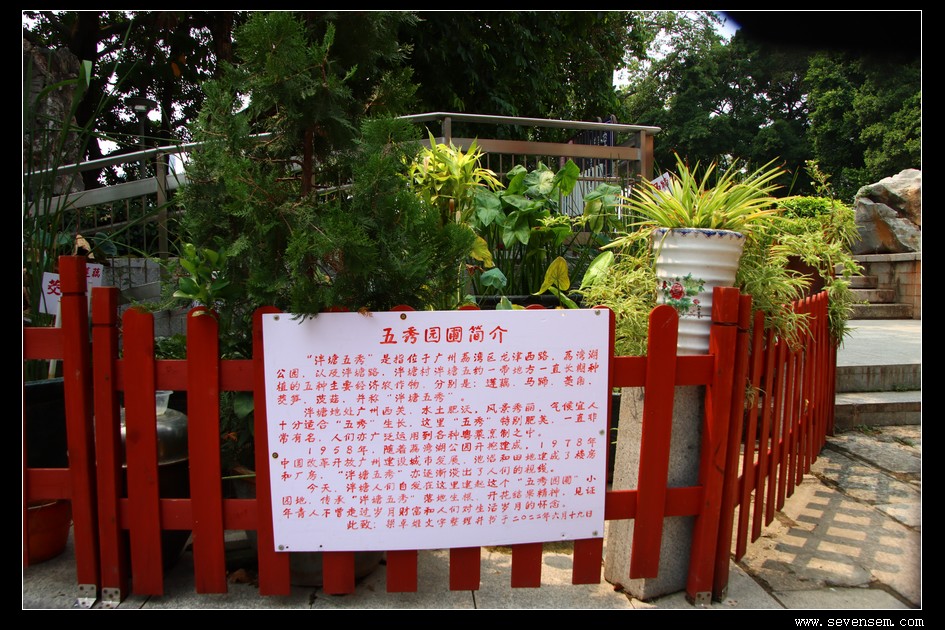 五秀园圃简介
“泮塘五秀”是指位于广州荔湾区龙津西路、荔湾湖
公园，以及泮塘路，泮塘村泮塘五约一带地方一直长期种
植的五种主要经济农作物，分别是：莲藕、马蹄、菱角、
茭笋、茨菇，并称“泮塘五秀”。
泮塘地处广州西关，水土肥沃，风景秀丽，气候宜人
十分适合“五秀”生长，这里“五秀”特别肥美，一直非
常有名，人们亦广泛运用到各种粤菜烹制之中。
1958年，随着荔湾湖公园开挖建成，1978年
中国改革开放广州建设城市发展，池沼和田地建成了楼房
和厂房，“泮塘五秀”亦逐渐淡出了人们的视线。
今天，泮塘人们自发在这里建起这个“五秀园圃”小
园地，传承“泮塘五秀”落地生根，开花结果精神，见证
年青人不曾走过岁月财富和人们对生活岁月的怀念。
此致：梁卓雄文字整理并书于2022年六月十九日
www.sevensem.com